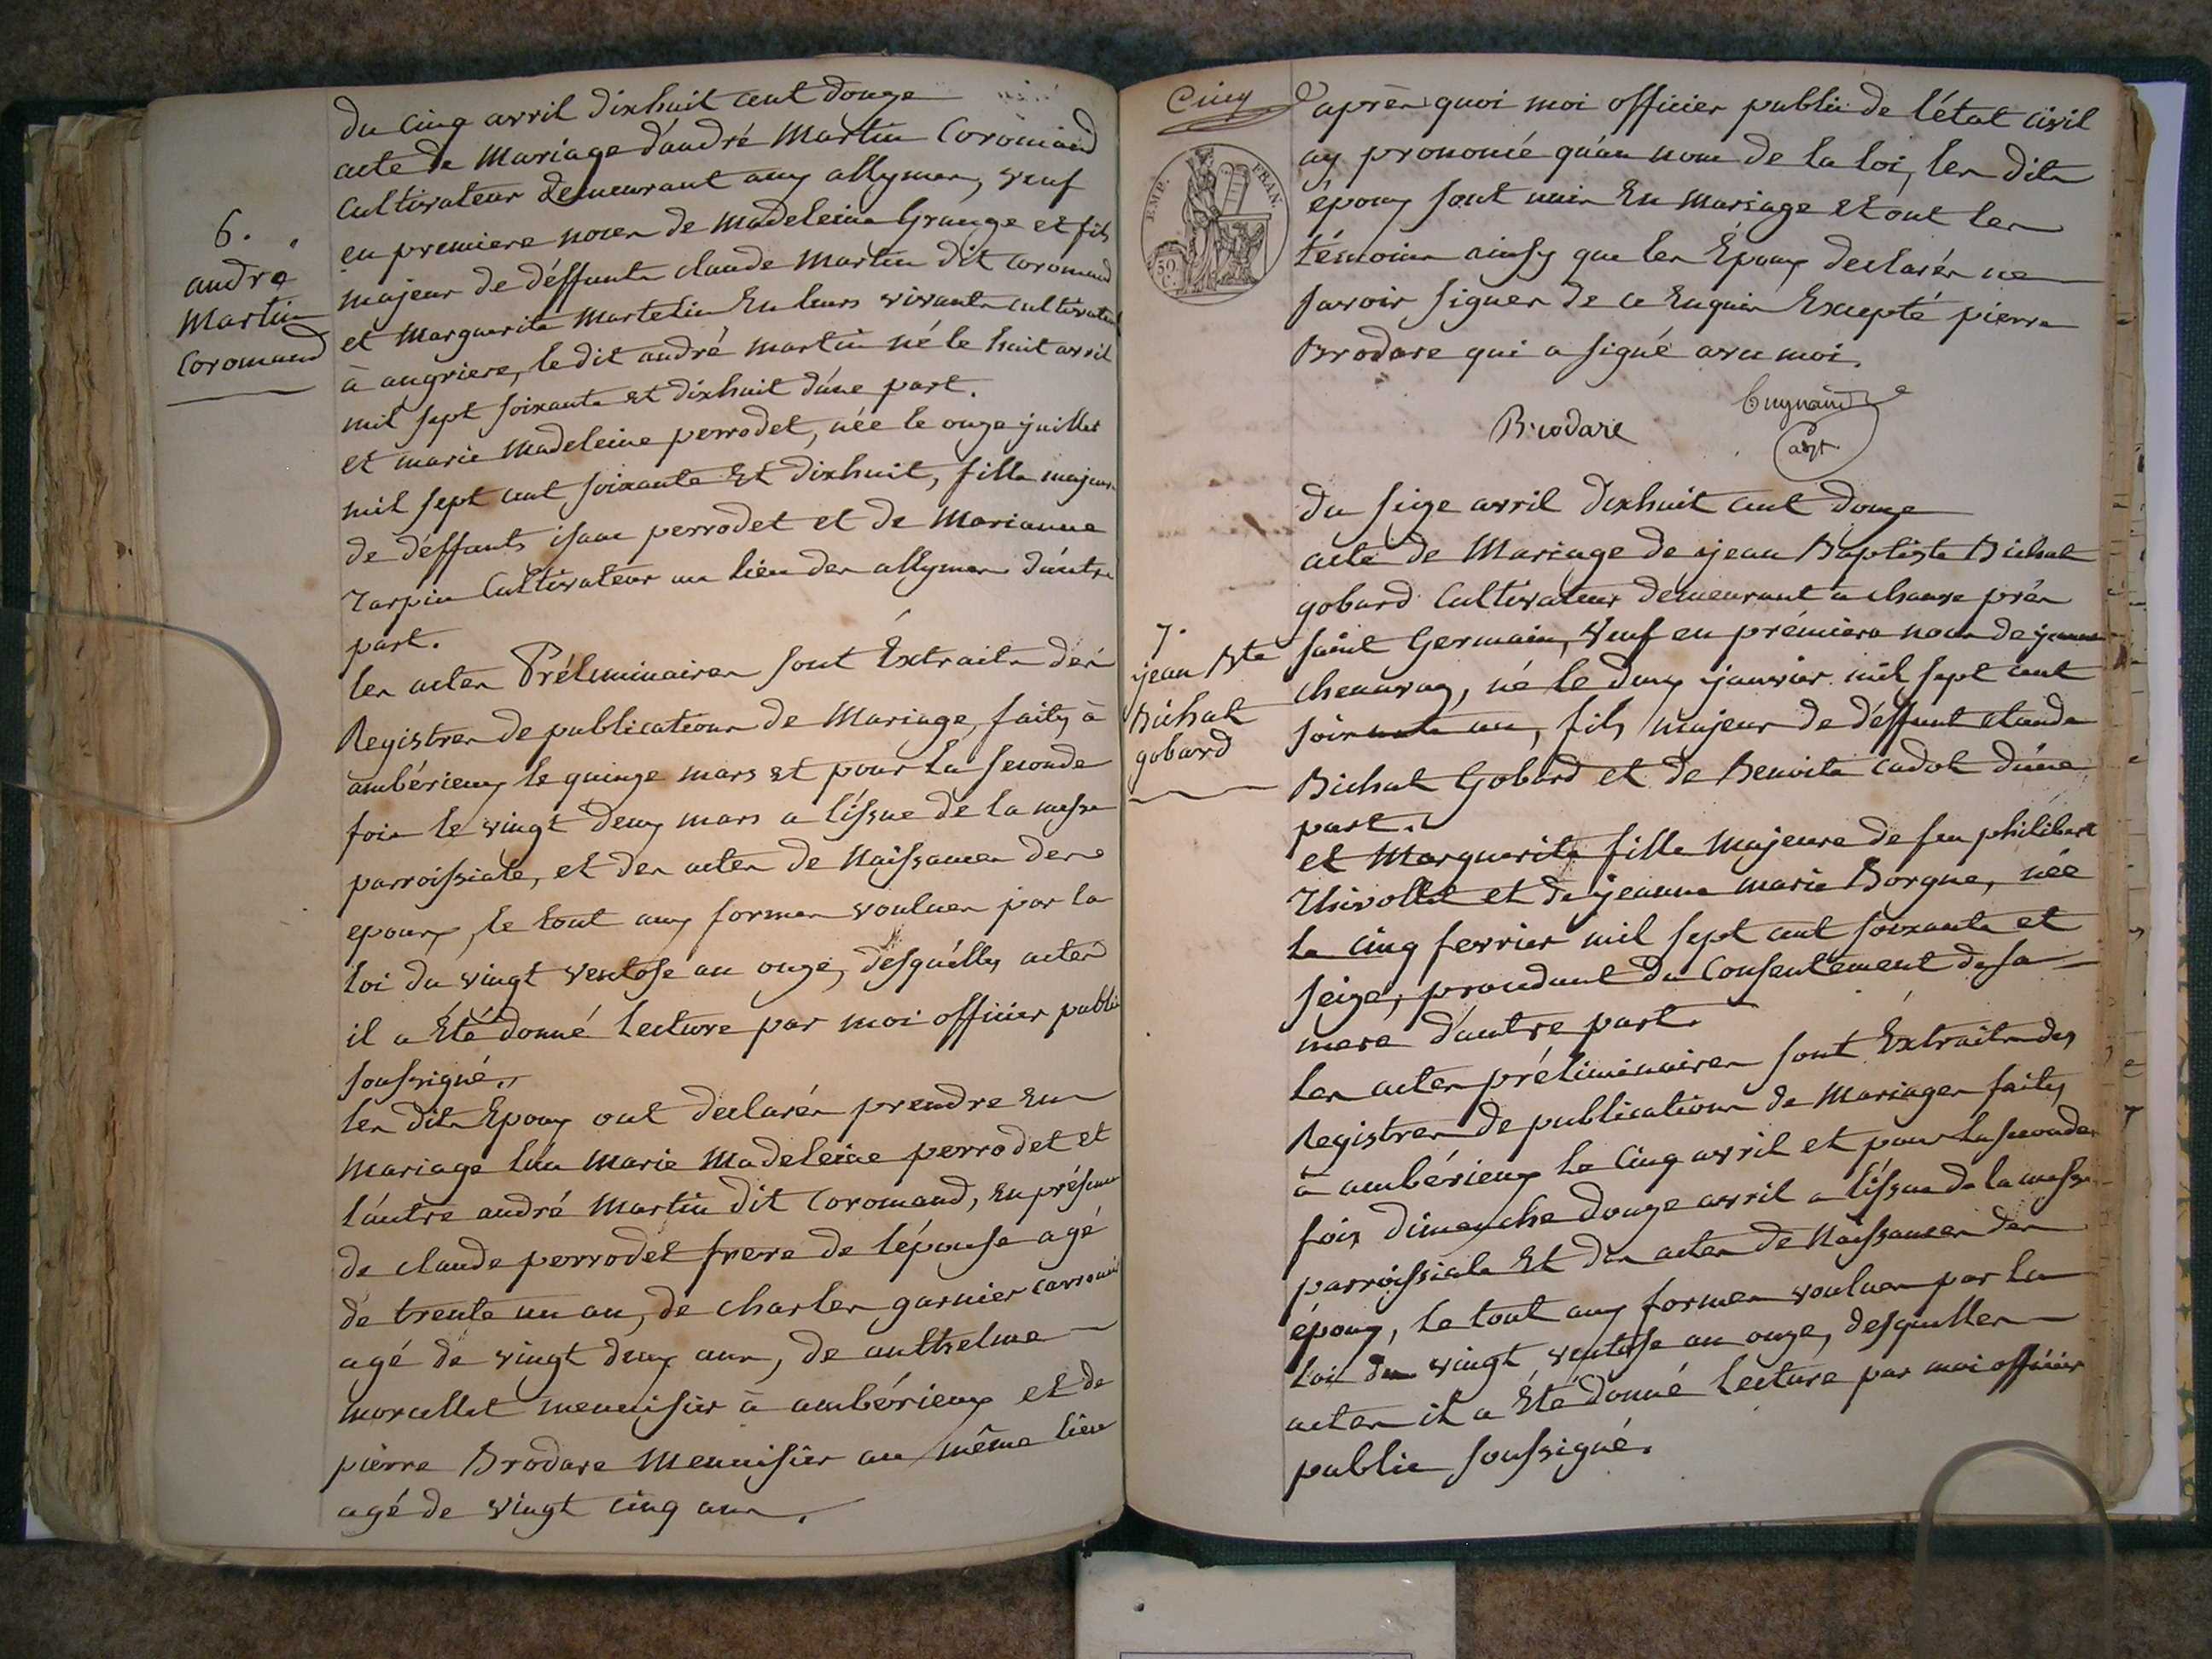 du cinq avril dixhuit cent douze
acte de Mariage d'andré Martin Coromand
Cultivateur demeurant aux allymes, veuf
en premiere noces de madeleine Grange et fils
majeur de déffunts claude Martin dit Coromand
et Marguerite Martelin En leurs vivants cultivateurs
à angriere, le dit andré martin né le huit avril
mil sept soixante et dixhuit d'une part.
et marie Madeleine perrodet, née le onze juillet
mil sept cent soixante Et dixhuit, fille majeure
de déffunts isaac perrodet et de Marianne
Tarpin Cultivateur au lieu des allymes d'autre
part.
6.
andré
Martin
Coromand
les actes Préliminaires sont Extraits des
Registres de publications de Mariage, faits à
ambérieux le quinze mars et pour la seconde
fois le vingt deux mars a l'issue de la messe
parroissiale, et des actes de Naissances des
epoux, le tout aux formes voulues par la
loi du vingt ventose an onze, desquélles actes
il a Été donné lecture par moi officier public
soussigné.
les dits Epoux ont declarés prendre En
Mariage l'un Marie Madeleine perrodet et
l'autre andré Martin dit Coromand, En présence
de claude perrodet frere de l'épouse agé
de trente un an, de charles garnier
agé de vingt deux ans, de anthelme
morcellet menuisier à ambérieux et de
pierre Brodare Menuisier au même lieu
agé de vingt cinq ans.
Cinq
EMP. FRAN.
50 C.
après quoi moi officier public de l'état civil
ay prononcé qu'au nom de la loi, les dits
époux sont unis En Mariage et ont les
témoins ainsy que les Époux declarés ne
savoir signer de ce Enquis Excepté pierre
Brodare qui a signé avec moi.
Brodare
adjt
du seize avril dixhuit cent douze
acte de Mariage de jean Baptiste Bichat
gobard Cultivateur demeurant a chause près
saint Germain, Veuf en prémiere noces de jeanne
chenavas, né le deux janvier mil sept cent
soixante un, fils majeur de déffunt claude
Bichat Gobard et de Benoite cadot d'une
part.
7.
jean Bte
Bichat
gobard
et Marguerite fille Majeure de feu philibert
Thivollet et de jeanne marie Borgne, née
le cinq fevrier mil sept cent soixante et
seize, procedant du Consentement de sa
mere d'autre part.
les actes préliminaires sont Extraits des
Registres de publications de Mariages faits
à ambérieux le cinq avril et pour la seconde
fois dimanche douze avril a l'issue de la messe
parroissiale Et des actes de Naissances des
époux, le tout aux formes voulues par la
loi du vingt ventose an onze, desquelles
actes il a Été donné lecture par moi officier
public soussigné.